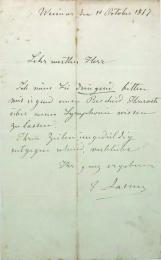 Weimar den 11 October 1867
Sehr werther Herr
Ich muss Sie dringend bitten
mir irgend einen Bescheid
über meine Symphonie wissen
zu lassen.
Ihren Zeilen ungeduldig
entgegen sehend, verbleibe
Ihr ganz ergebener
E Lassen